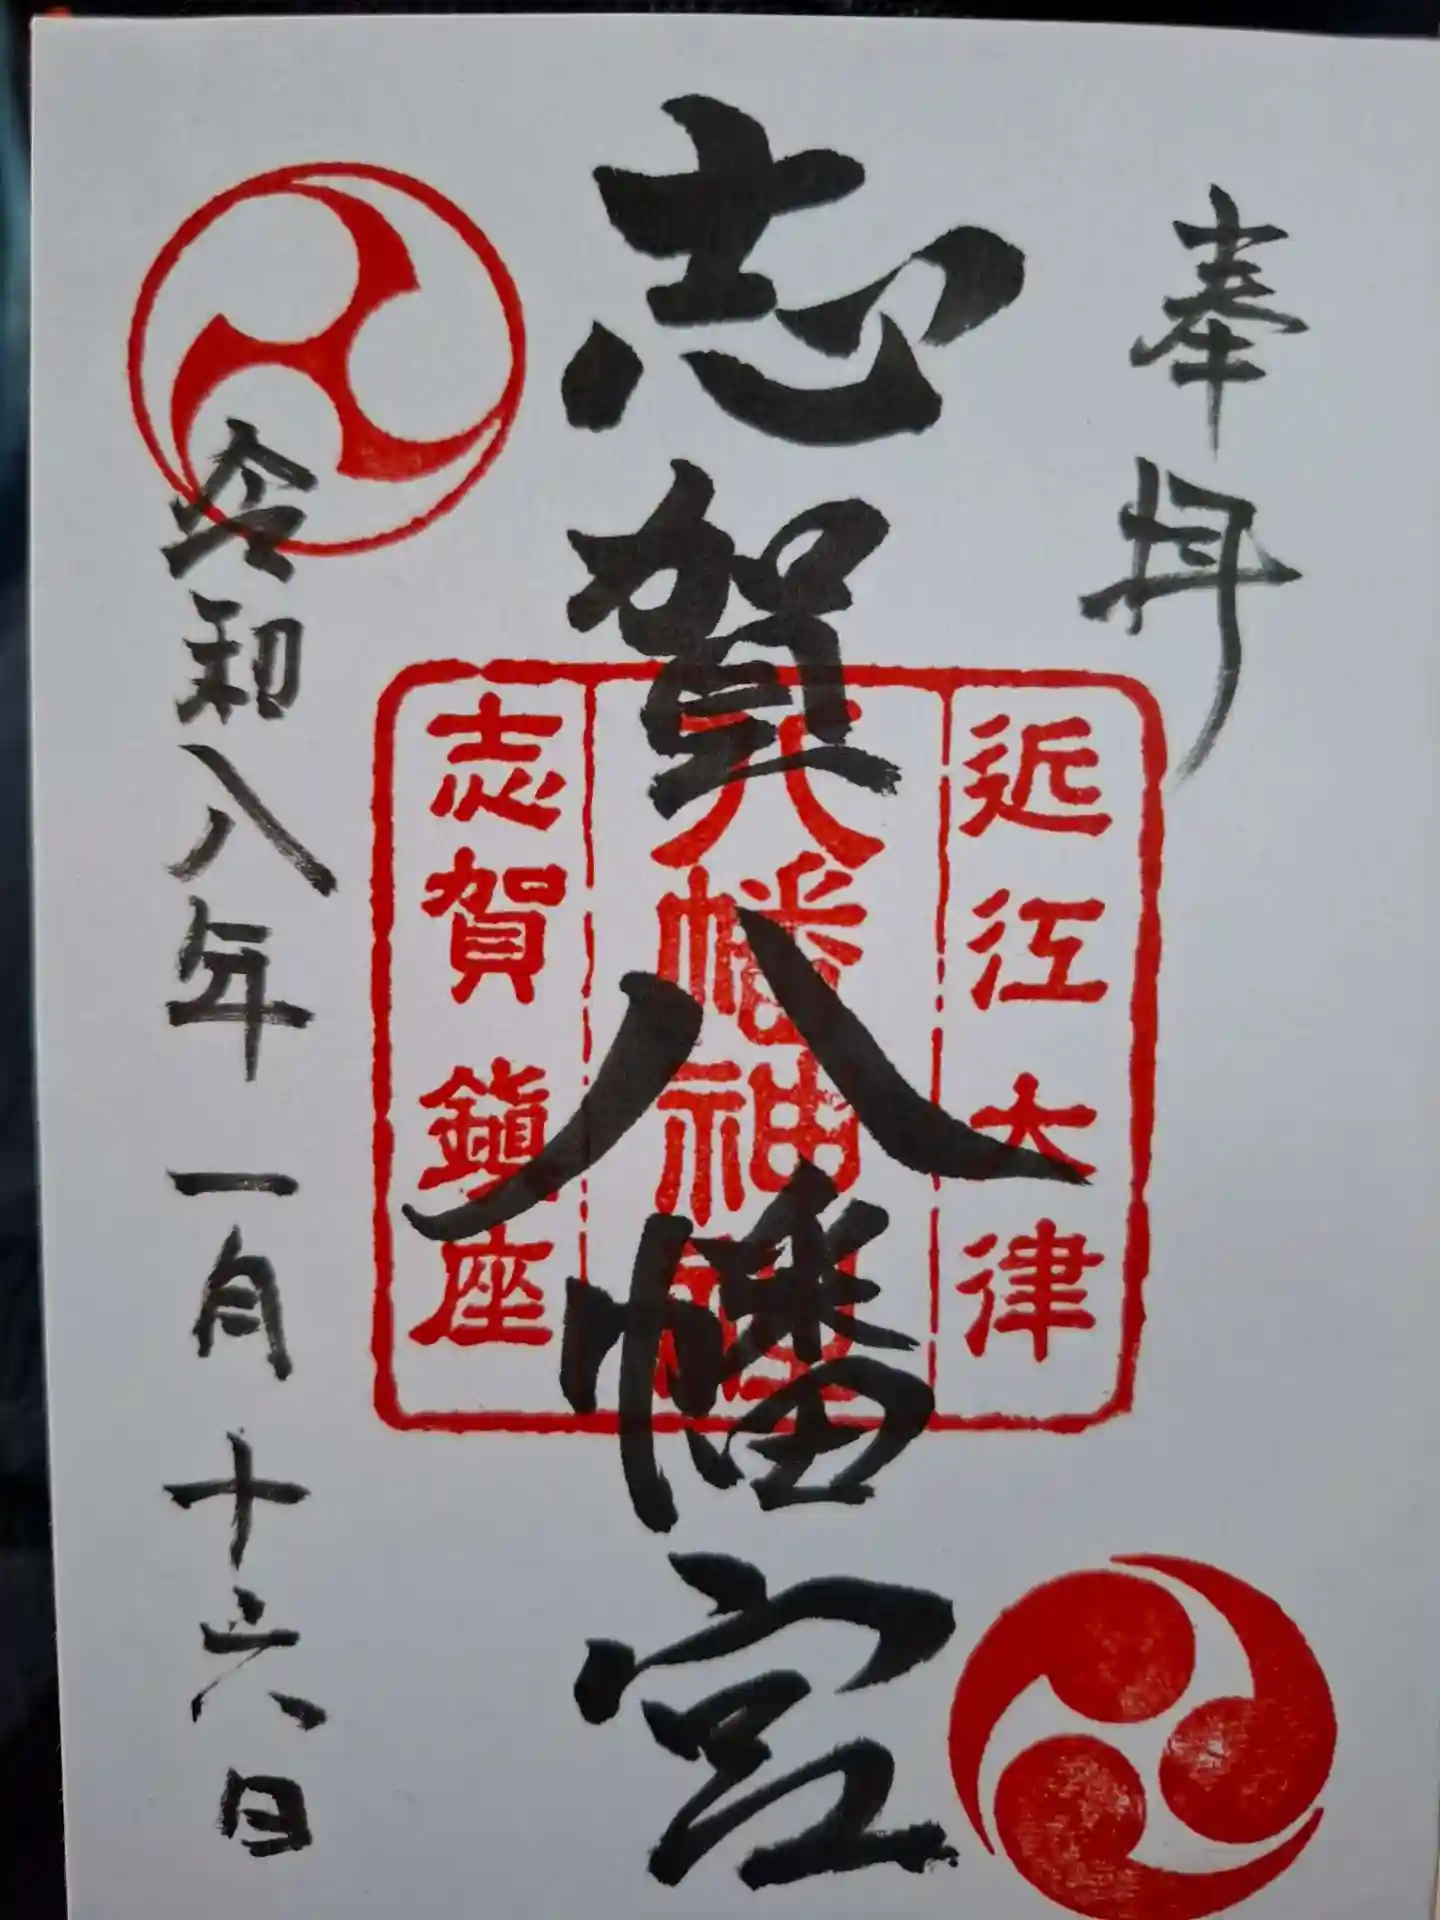 奉拝
近江大津
志賀八幡宮
八幡神社
志賀鎮座
令和八年一月十六日